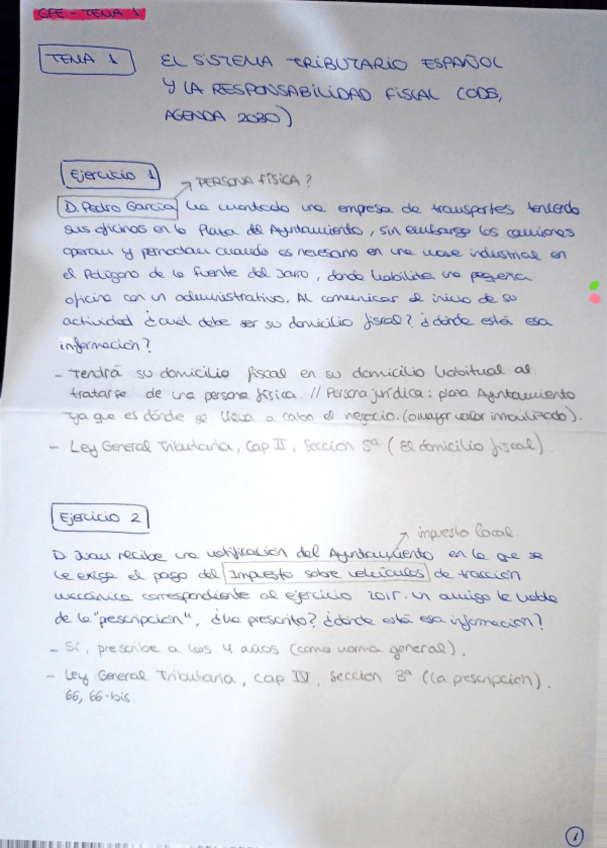 GFE - TEMA 1
TEMA 1
EL SISTEMA TRIBUTARIO ESPAÑOL
Y LA RESPONSABILIDAD FISCAL (ODS,
AGENDA 2030)
Ejercicio 1
PERSONA FÍSICA?
D. Pedro García ha montado una empresa de transportes teniendo
sus oficinas en la Plaza del Ayuntamiento, sin embargo los camiones
operan y pernoctan cuando es necesario en una nave industrial en
el Polígono de la Fuente del Jarro, donde habilita una pequeña
oficina con un administrativo. Al comunicar el inicio de su
actividad ¿cuál debe ser su domicilio fiscal? ¿dónde está esa
información?
- Tendrá su domicilio fiscal en su domicilio habitual al
tratarse de una persona física. // Persona jurídica: plaza Ayuntamiento
ya que es dónde se lleva a cabo el negocio. (o mayor valor inmovilizado).
- Ley General Tributaria, Cap II, Sección 5ª (El domicilio fiscal).
Ejercicio 2
impuesto local
D. Juan recibe una notificación del Ayuntamiento en la que se
le exige el pago del Impuesto sobre vehículos de tracción
mecánica correspondiente al ejercicio 2015. Un amigo le habla
de la "prescripción", ¿ha prescrito? ¿dónde está esa información?
- Sí, prescribe a los 4 años (como norma general).
- Ley General Tributaria, Cap IV, Sección 3ª (La prescripción).
66, 66-bis
1